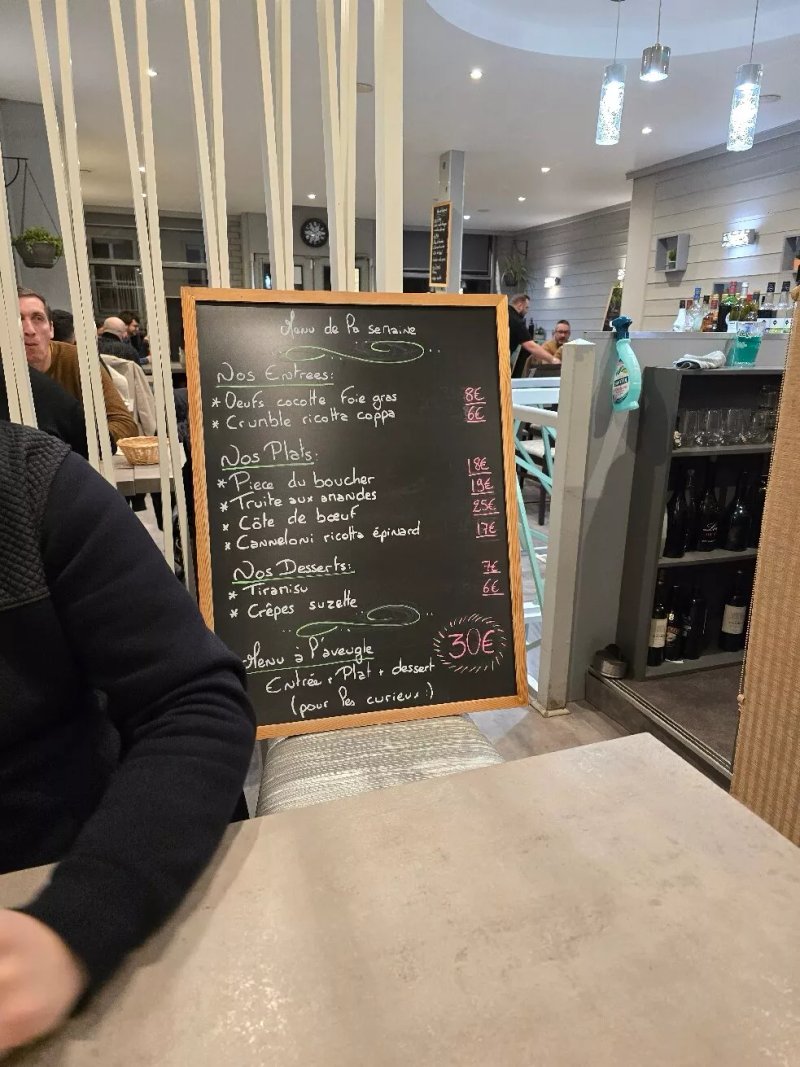 Menu de la semaine
Nos Entrees:
* Oeufs cocotte foie gras 8€
* Crumble ricotta coppa 6€
Nos Plats:
* Piece du boucher 18€
* Truite aux amandes 19€
* Côte de bœuf 25€
* Canneloni ricotta épinard 17€
Nos Desserts:
* Tiramisu 7€
* Crêpes suzette 6€
Menu à l'aveugle 30€
Entrée + Plat + dessert
(pour les curieux :)